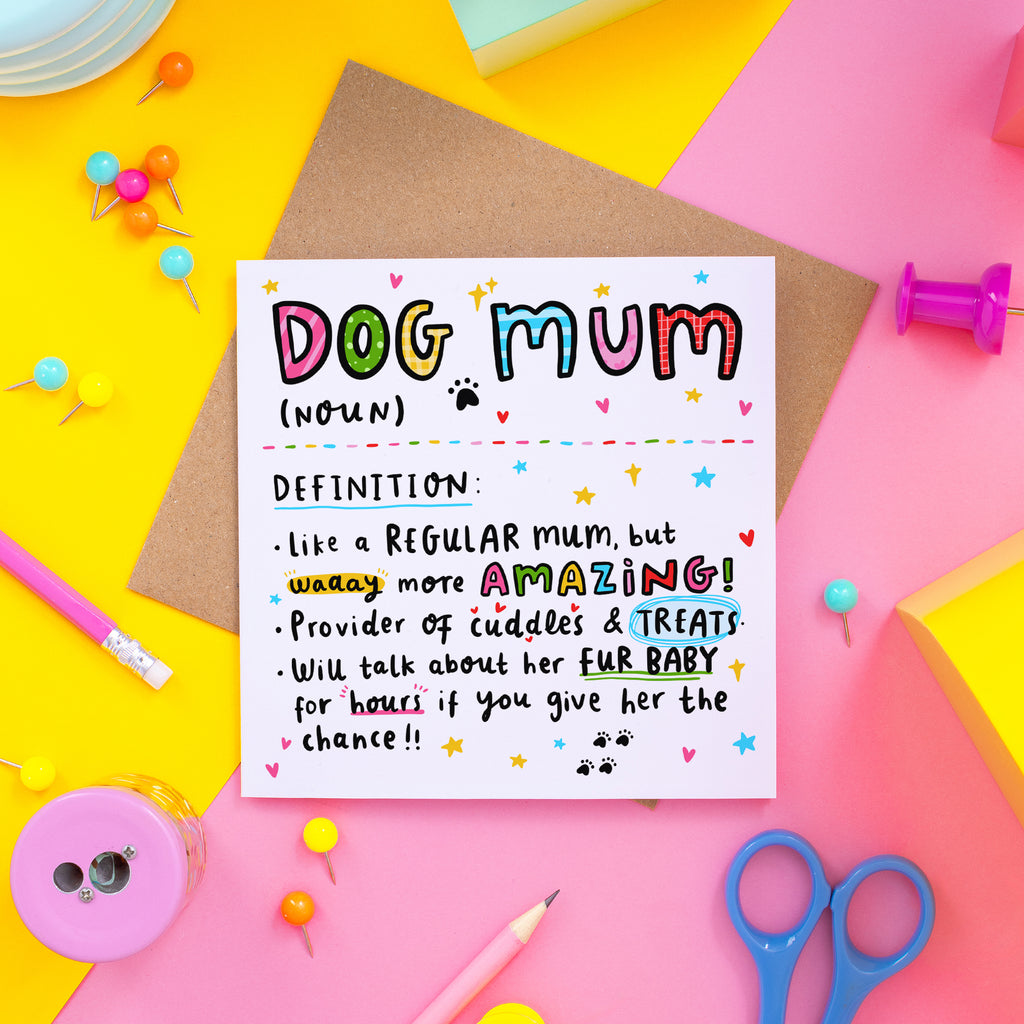 DOG MUM
(NOUN)
DEFINITION:
• Like a REGULAR mum, but
waaay more AMAZING!
• Provider OF cuddles & TREATS.
• Will talk about her FUR BABY
for "hours" if you give her the
chance!!